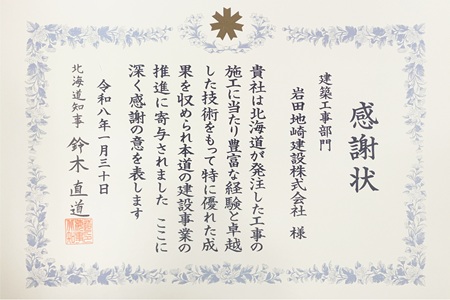 感謝状
建築工事部門
岩田地崎建設株式会社 様
貴社は北海道が発注した工事の
施工に当たり豊富な経験と卓越
した技術をもって特に優れた成
果を収められ本道の建設事業の
推進に寄与されました ここに
深く感謝の意を表します
令和八年一月三十日
北海道知事 鈴木直道